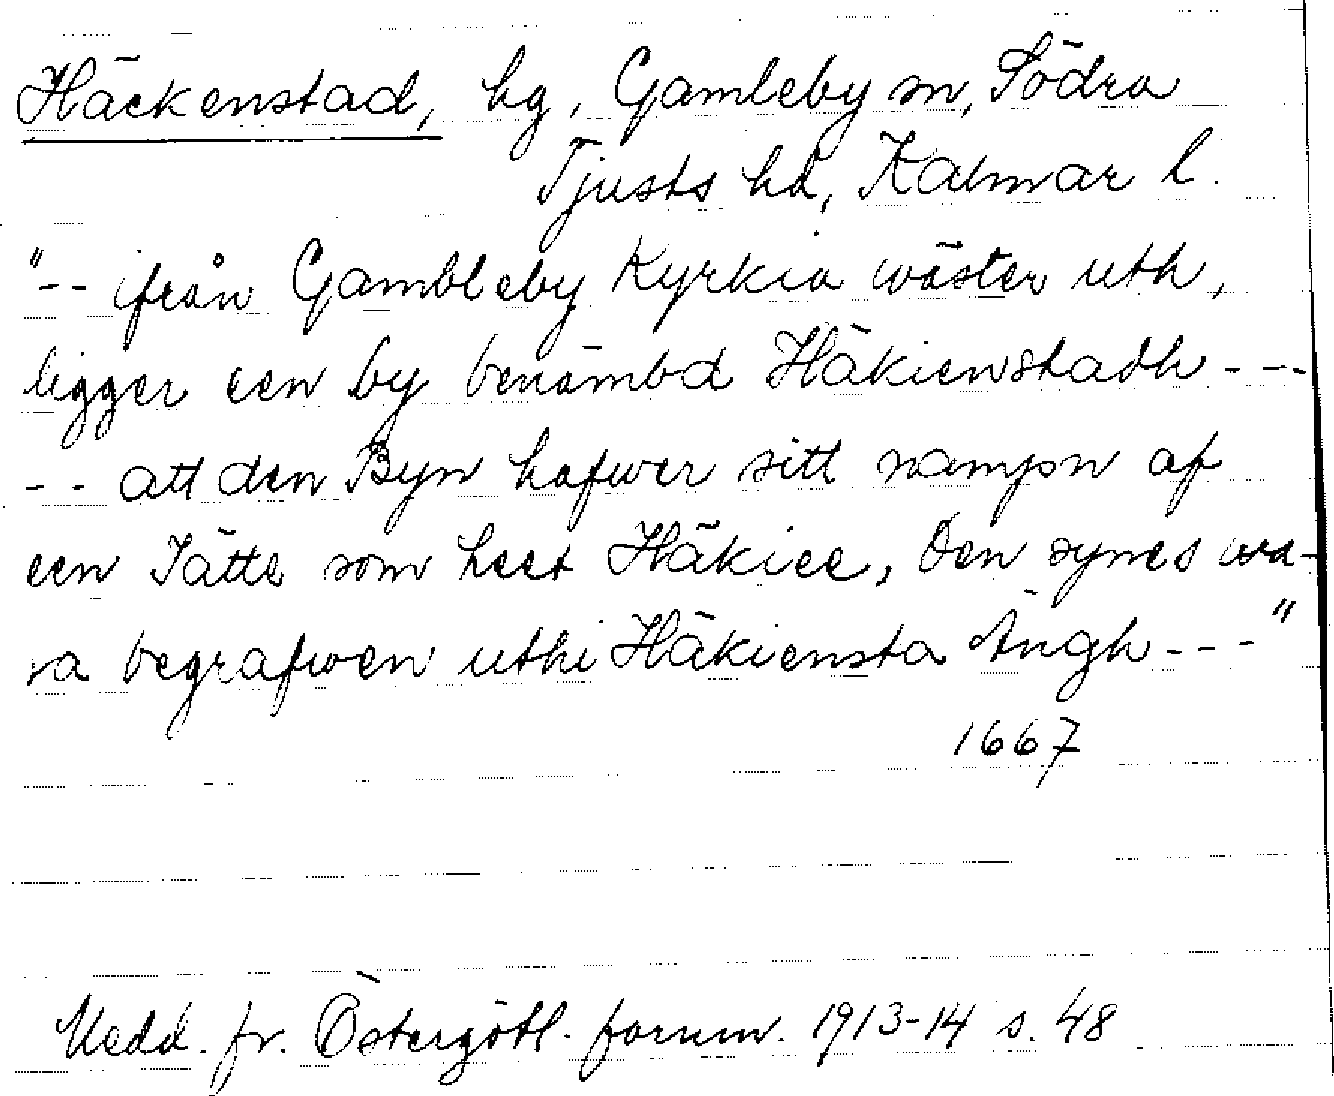 Häckenstad, hg, Gamleby sn, Södra
Tjusts hd, Kalmar l.
"-- ifrån Gambleby Kyrkia wäster uth,
ligger een by benämbd Häkienstadh ---
-- att den Byn hafwer sitt nampn af
een Jätte som heet Häkiee, Den synes wa-
ra begrafwen uthi Häkiensta Ängh ---"
1667
Medd. fr. Östergötl. fornm. 1913-14 s. 48